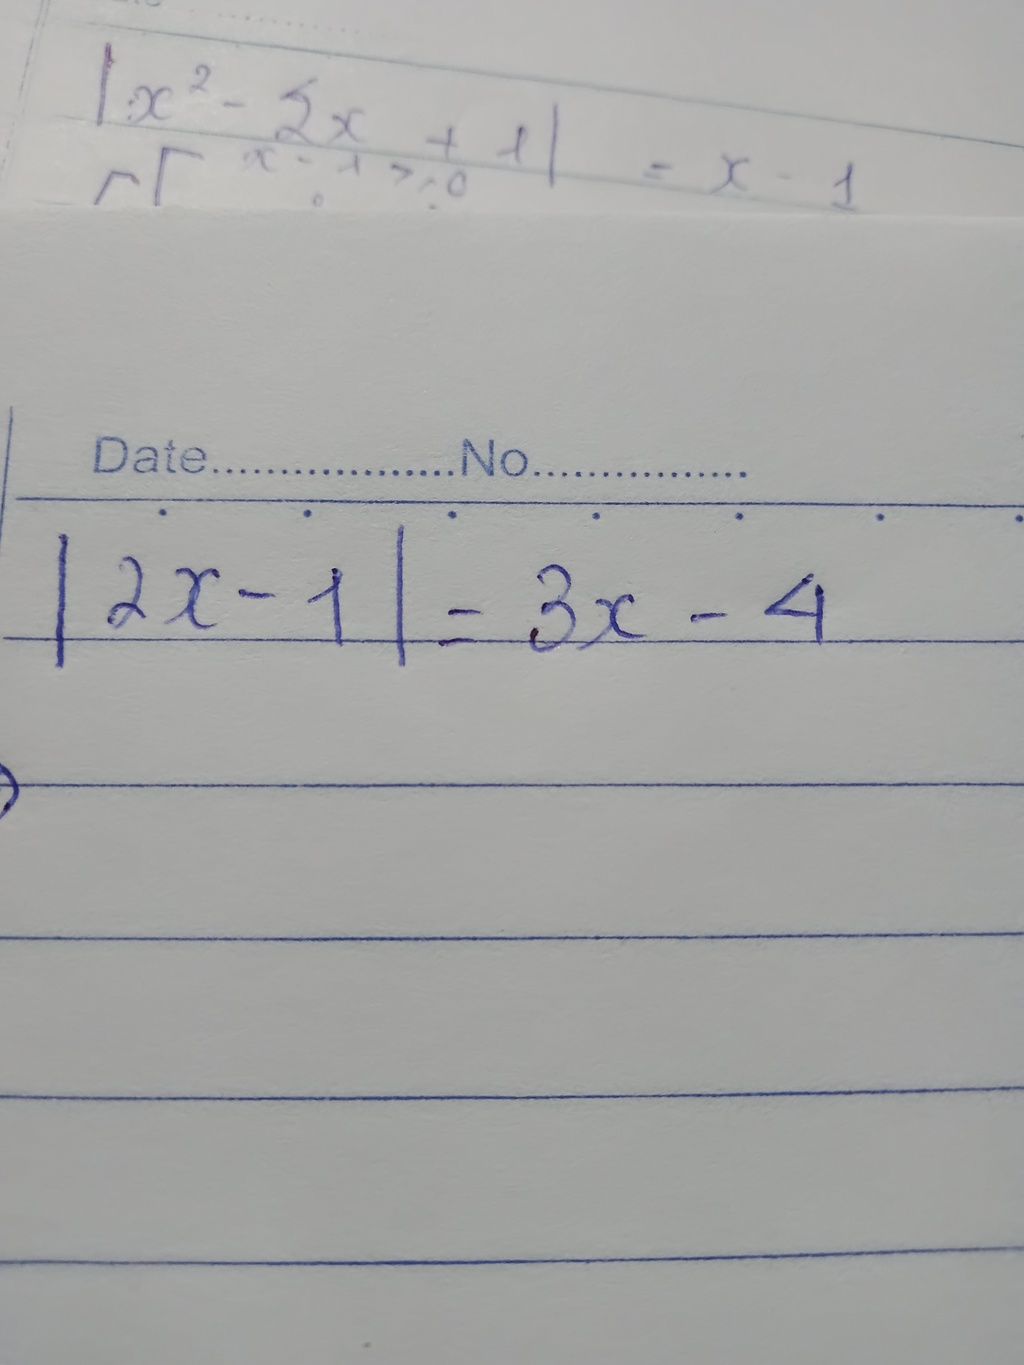 |x² - 2x + 1| = x - 1
x - 1 > 0
Date..................No................
|2x - 1| = 3x - 4